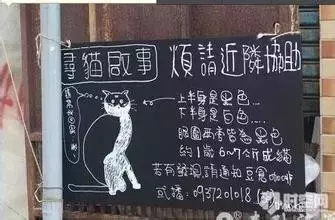 尋貓啟事 煩請近隣協助
上半身是黑色…
下半身是白色…
眼圈兩旁皆為黑色
約1歲6~7公斤成貓
若有發現請通知豆食
或播：0937201018